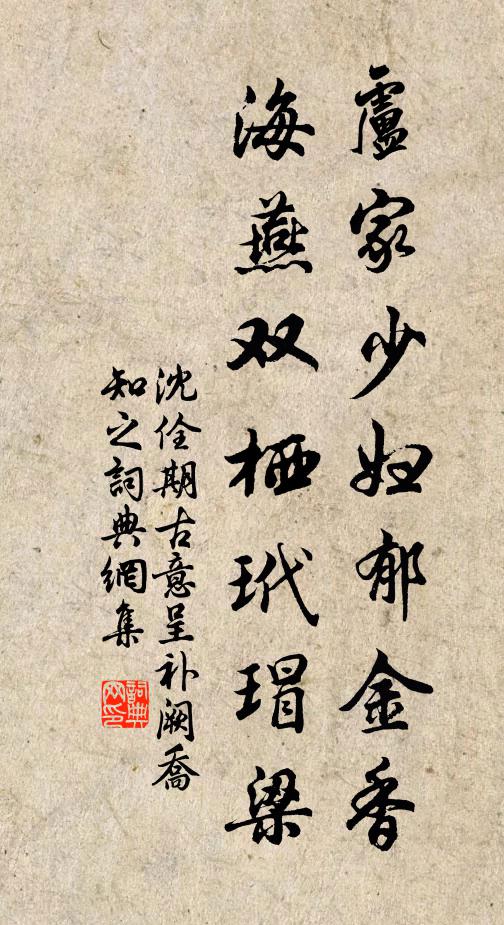 盧家少妇郁金香
海燕双栖玳瑁梁
沈佺期古意呈补阙喬
知之詞典網集
詞典网印